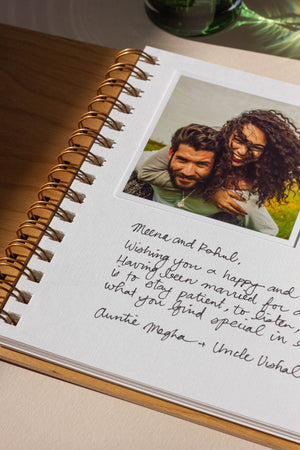 Meena and Rahul,
Wishing you a happy and
Having been married for
is to stay patient, to listen
what you find special in
Auntie Megha + Uncle Vishal